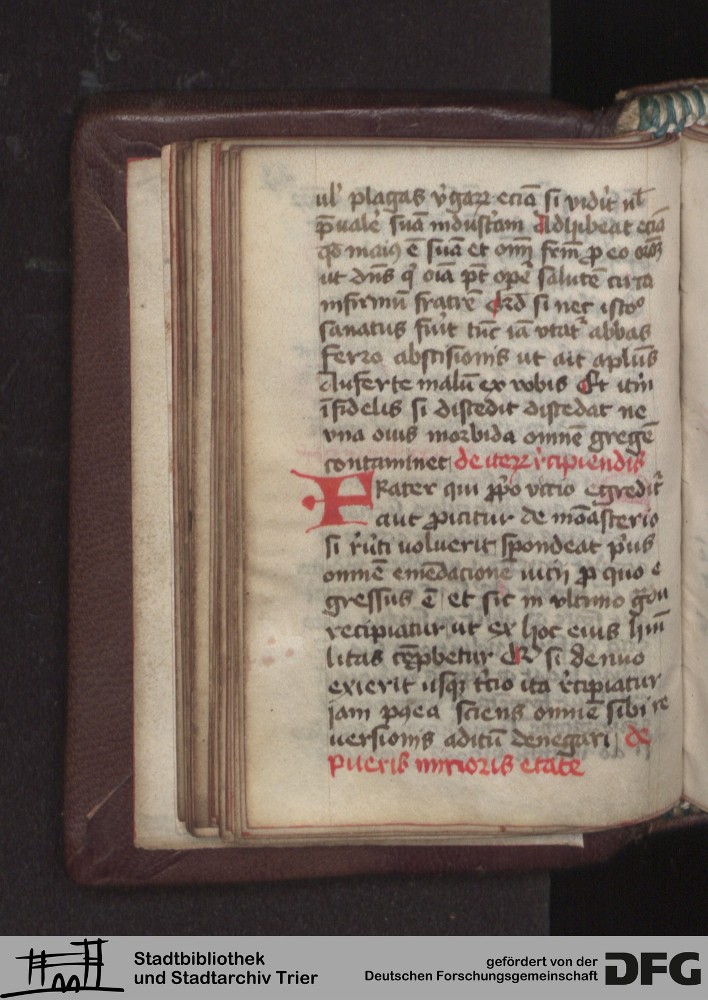 ul̛ plagas v̛gaꝝ eciā si vidīt ul̄
p̄uale̛ suā industͥam Adhibeat eciā
qd̄ maiꝰ ē suā et om̄i fr̄m ꝓ eo or̄ōꝫ
ut dn̄s qͥ oīa pt̄ ope̛ salutē circa
infirmū fratrē Qd̄ si nec istoᵒ
sanatus fūit tūc iā vtatᷣ abbas
ferro abscisionis ut ait apl̄us
Auferte malū ex vobis Et itm̄
īfidelis si discedit discedat ne
vna ouis morbida omnē gregē
contaminet de iteꝝ r̛cipiendis
FRater qui ꝓpͦo vicio egreditᷣ
aut ꝓicitur de mōasterio
si r̛uti voluerit spondeat pͥus
omnē emēdacionē vicij ꝓ quo e
gressus ē et sic in vltimo gͣdu
recipiatur ut ex hoc eius humi
litas cōꝓbetur Qd̄ si denuo
exierit usqꝫ tͨcio ita r̛cipiatur
jam pꝰea sciens omnē sibi re
uersionis aditū denegari de
pueris minoris etate
Stadtbibliothek
und Stadtarchiv Trier
gefördert von der
Deutschen Forschungsgemeinschaft
DFG